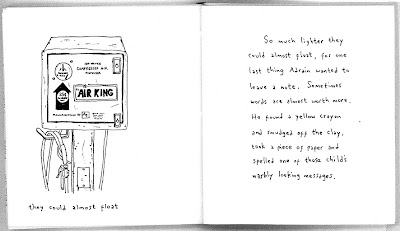 COMPRESSED AIR
AIR KING
they could almost float
So much lighter they
could almost float, for one
last thing Adrain wanted to
leave a note. Sometimes
words are almost worth more.
He found a yellow crayon
and smudged off the clay,
took a piece of paper and
spelled one of those child's
warbly looking messages.